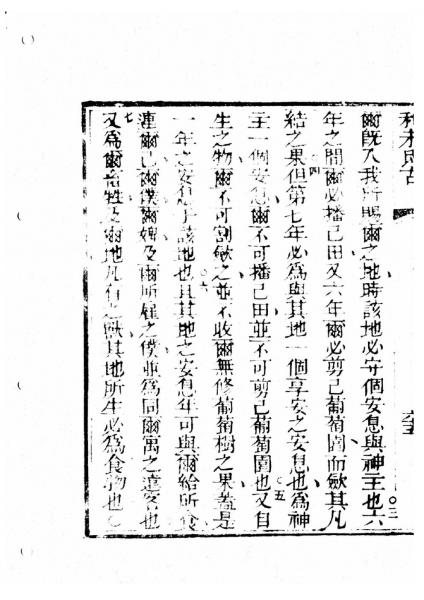 爾既入我所賜爾之地時該地必守個安息與神主也六
年之間爾必播己田又六年爾必剪己葡萄園而歛其凡
結之果但第七年必為與其地一個享安之安息也為神
主一個安息爾不可播己田並不可剪己葡萄園也又自
生之物爾不可割歛之並不收爾無修葡萄樹之果蓋是
一年之安息于該地也且其地之安息年可與爾給所食
連爾己爾僕爾婢及爾所雇之僕並為同爾寓之遠客也
又為爾畜牲及爾地凡有之獸其地所生必為食物也